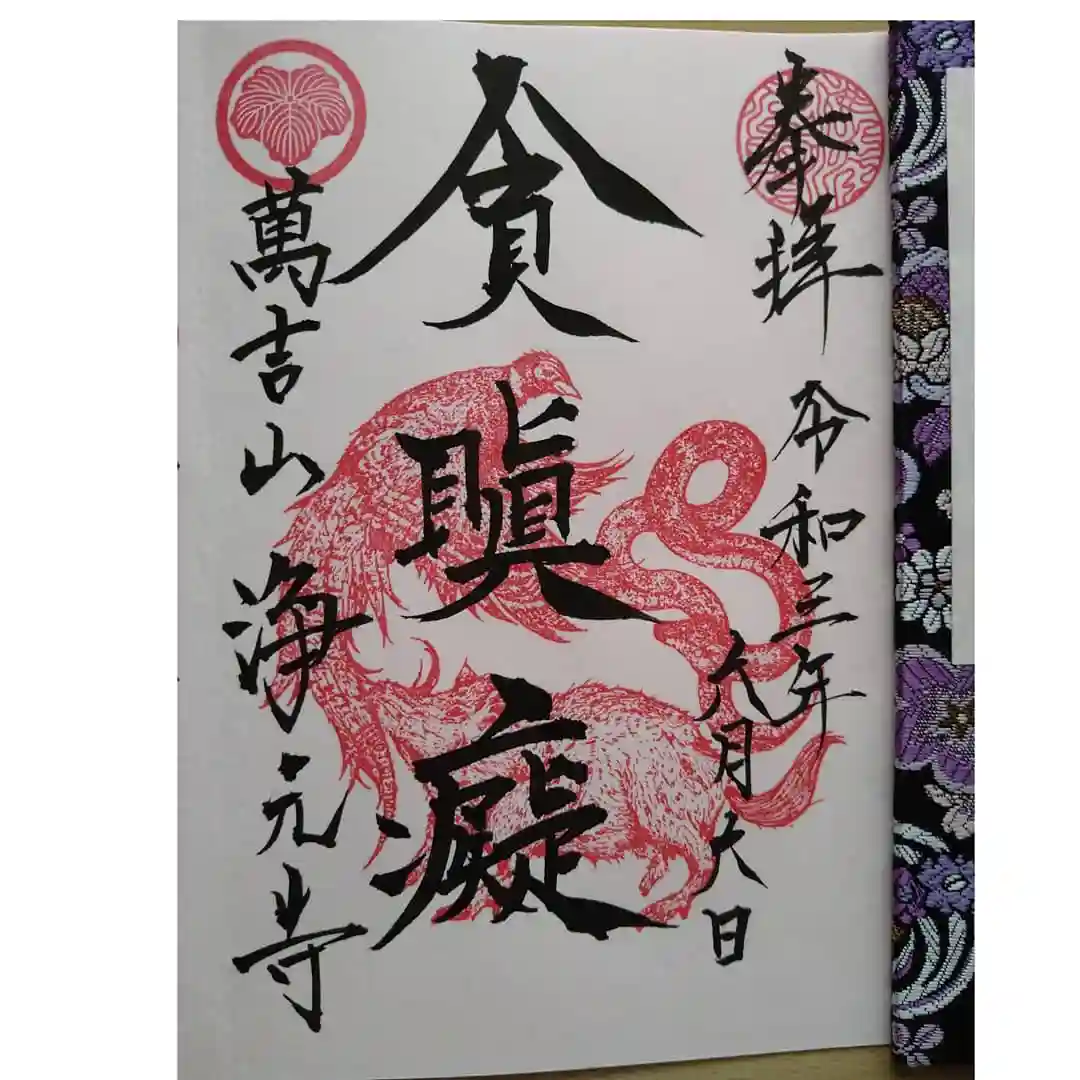 奉拝 令和三年
六月六日
貪瞋癡
萬吉山 浄元寺